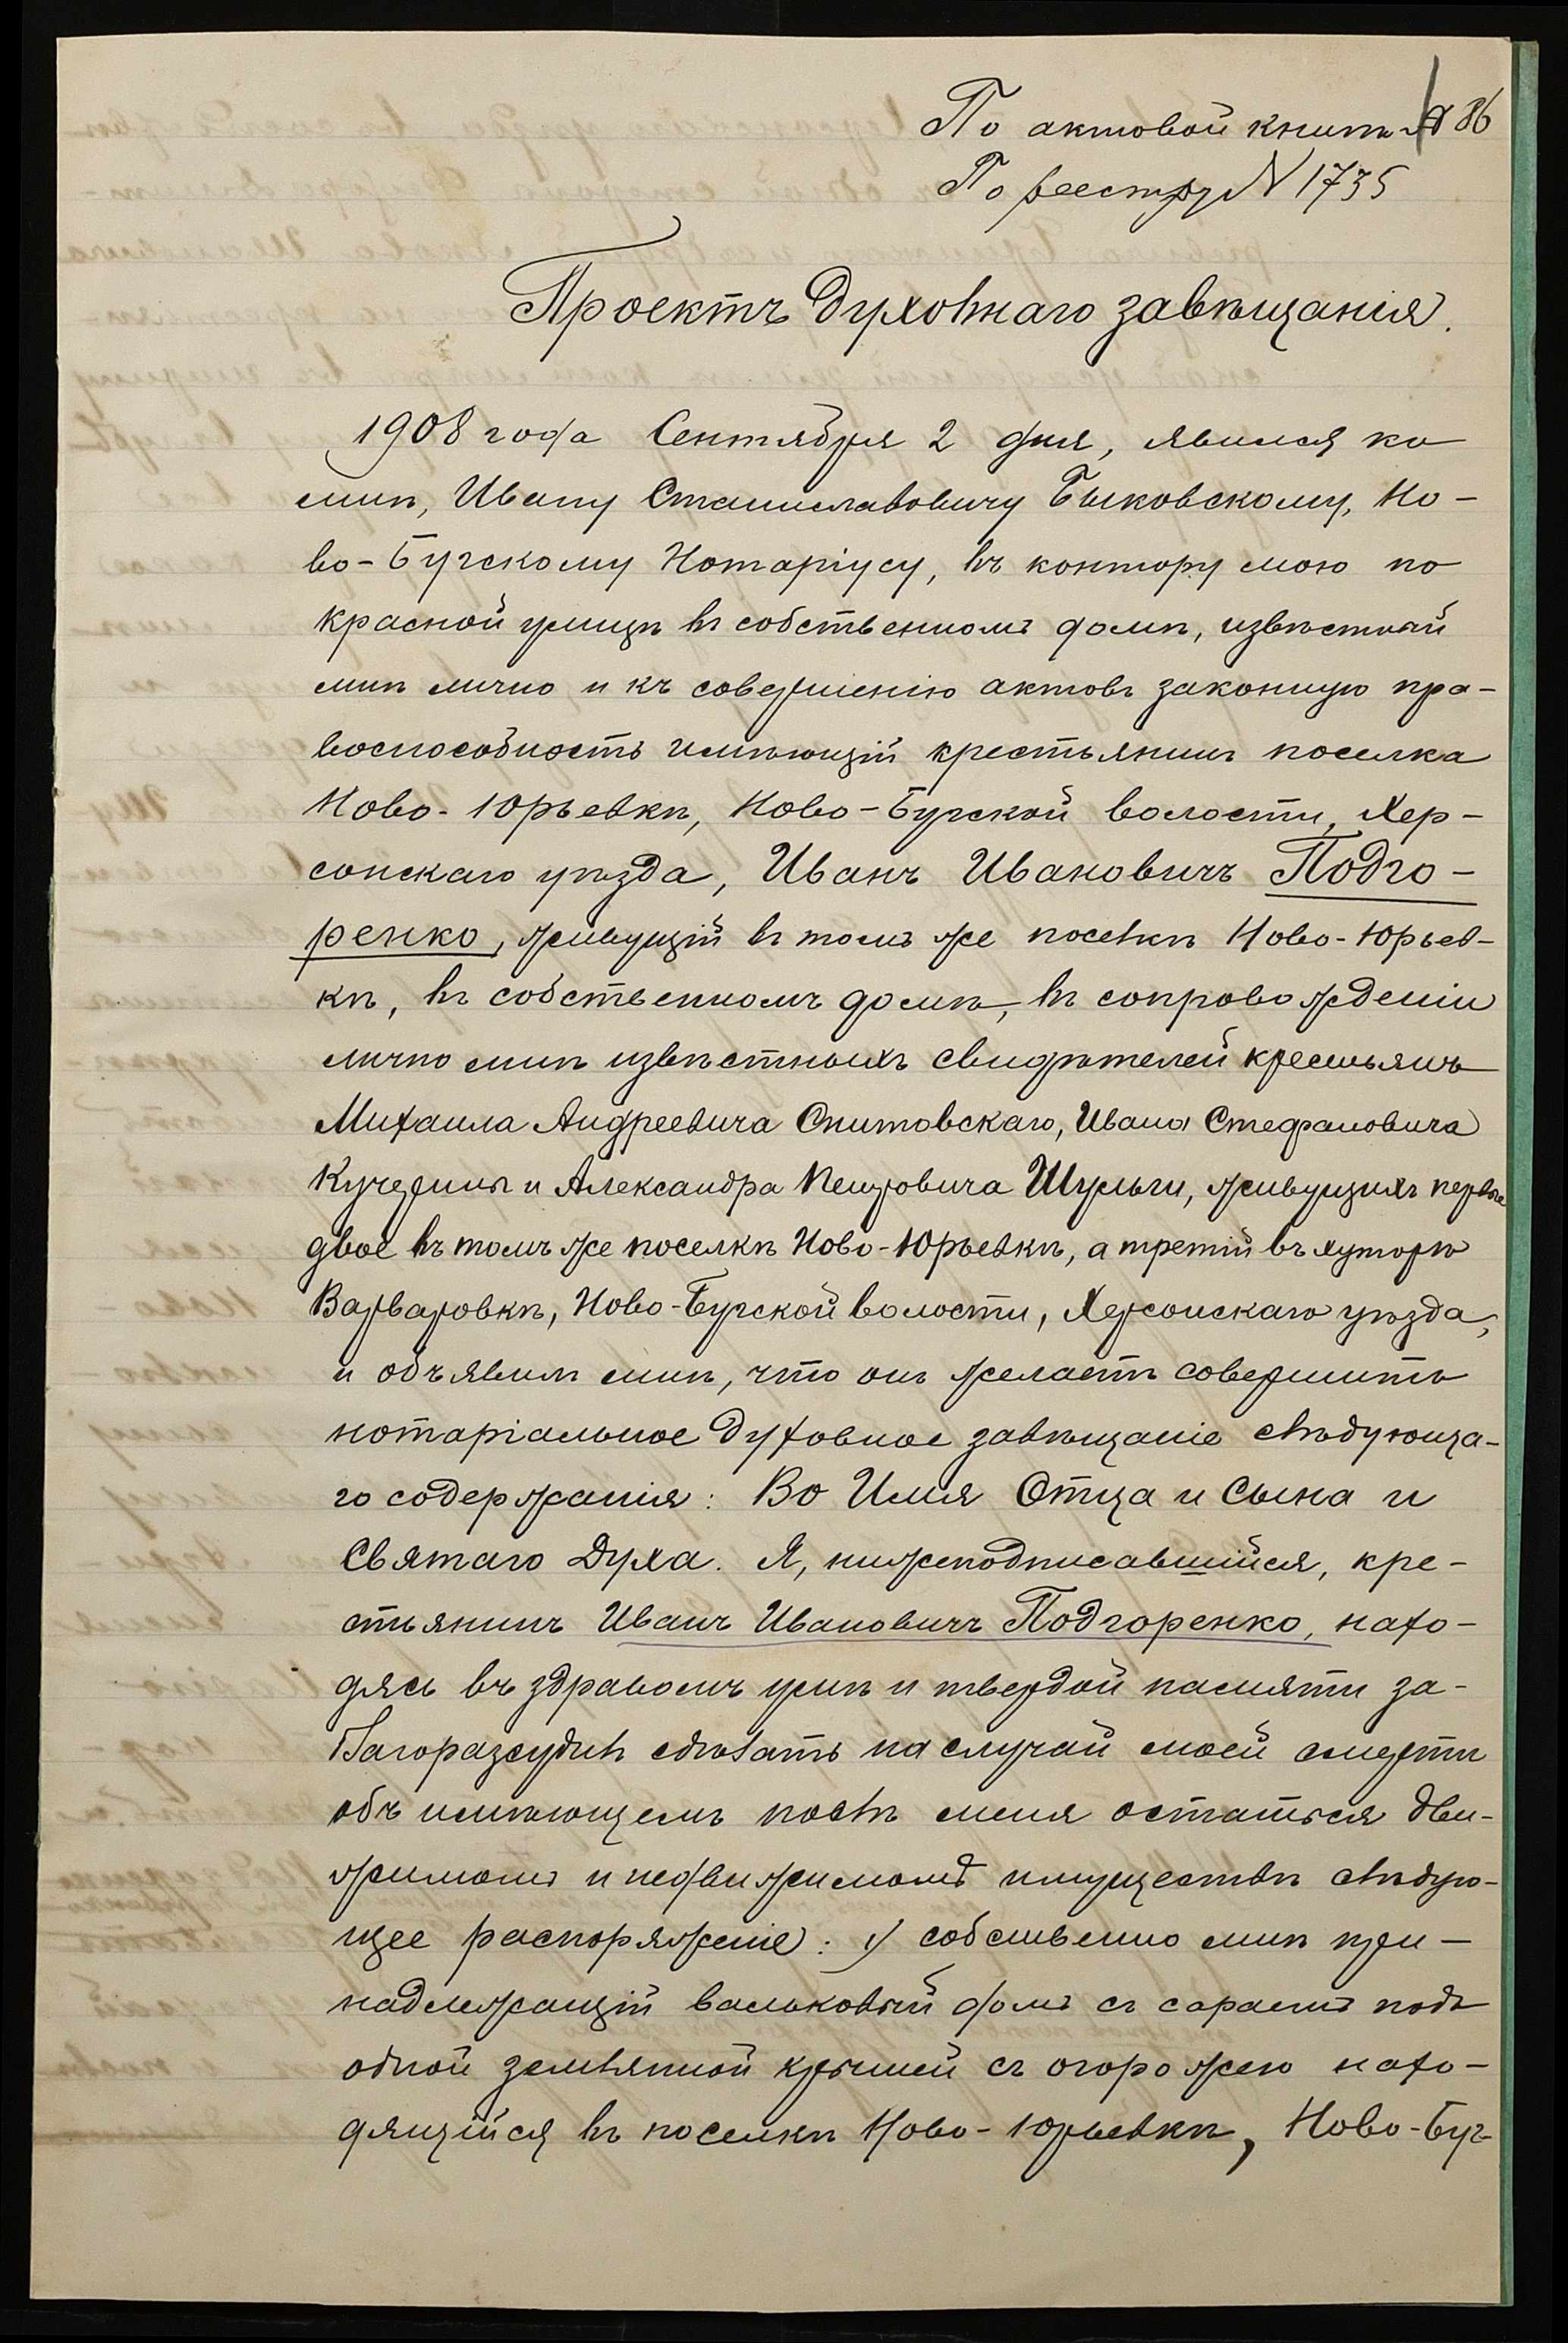 По актовой книгѣ № 86
По реестру № 1735
Проектъ духовнаго завѣщанія.
1908 года Сентября 2 дня, явился ко
мнѣ, Ивану Станиславовичу Быковскому, Но-
во-Бугскому Нотаріусу, въ контору мою по
красной улицѣ въ собственномъ домѣ, извѣстный
мнѣ лично и къ совершенію актовъ законную пра-
воспособность имѣющій крестьянинъ поселка
Ново-Юрьевки, Ново-Бугской волости, Хер-
сонскаго уѣзда, Иванъ Ивановичъ Подго-
ренко, живущій въ томъ же поселкѣ Ново-Юрьев-
кѣ, въ собственномъ домѣ, въ сопровожденіи
лично мнѣ извѣстныхъ свидѣтелей крестьянъ
Михаила Андреевича Снитовскаго, Ивана Стефановича
Кучерины и Александра Петровича Шульги, живущихъ первые
двое въ томъ же поселкѣ Ново-Юрьевкѣ, а третій въ хуторѣ
Варваровкѣ, Ново-Бугской волости, Херсонскаго уѣзда,
и объявилъ мнѣ, что онъ желаетъ совершить
нотаріальное духовное завѣщаніе слѣдующа-
го содержанія: Во Имя Отца и Сына и
Святаго Духа. Я, нижеподписавшійся, кре-
стьянинъ Иванъ Ивановичъ Подгоренко, нахо-
дясь въ здравомъ умѣ и твердой памяти за-
благоразсудилъ сдѣлать на случай моей смерти
объ имѣющемъ послѣ меня остаться дви-
жимомъ и недвижимомъ имуществѣ слѣдую-
щее распоряженіе: 1) собственно мнѣ при-
надлежащій вальковый домъ съ сараемъ подъ
одной земляной крышей съ огорожею нахо-
дящійся въ поселкѣ Ново-Юрьевкѣ, Ново-Буг-